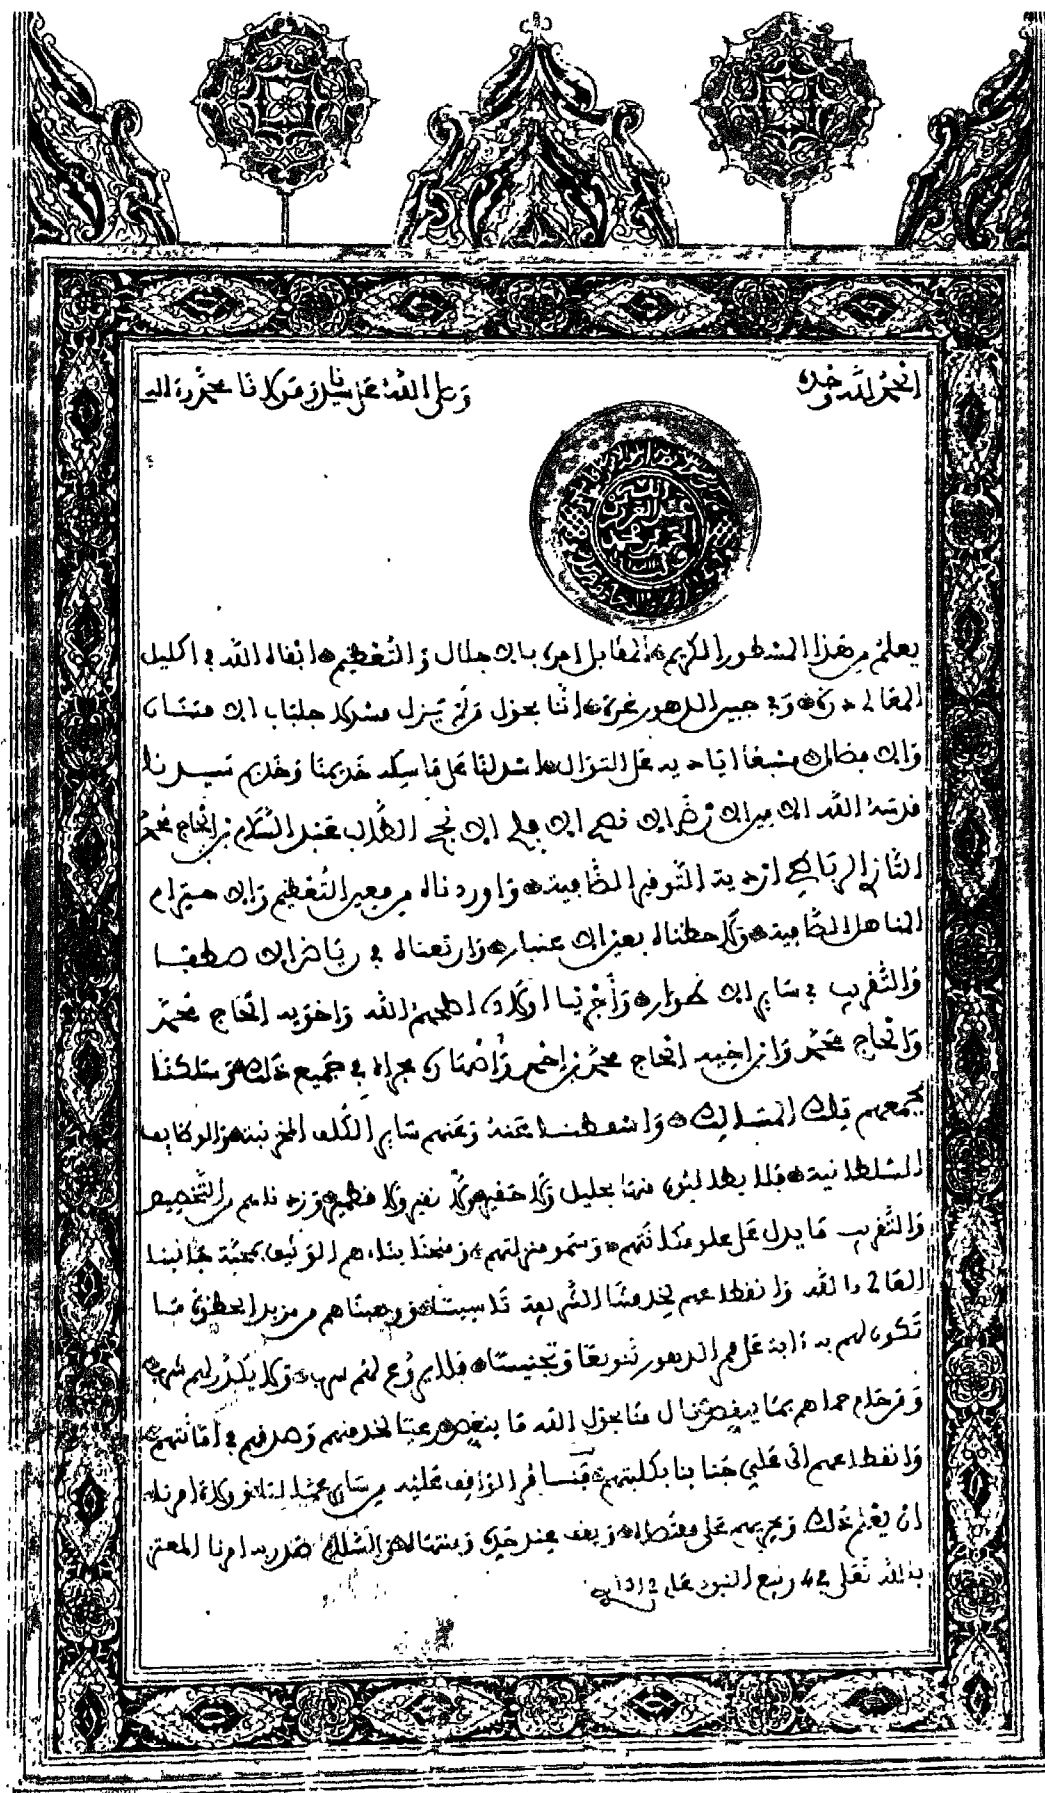 الحمد لله وحده وصلى الله على سيدنا ومولانا محمد وءاله
عبد العزيز بن الحسن
يعلم من هذا المسطور الكريم المقابل امره بالاجلال والتعظيم ابقاه الله في اكليل
المعالي درة وفي جبين الدهور غرة اننا بحول من لم يزل مسديا جلباب الامتنان
والافضال مسبغا اياديه على التوال اسدلنا على ماسكه خديمنا وخديم سيدنا
قدسه الله الامين الارضى الفقيه الاجل الانجح الطالب عبد السلام بن الحاج محمد
التازي الرباطي اردية التوقير الضافية واوردناه من معين التعظيم والاحترام
المناهل الصافية ولاحظناه بعين الاعتبار وارتعناه في رياض الاصطفا
والتقريب في ساير الاطوار واجرينا اولاده اصلحهم الله واخويه الحاج محمد
والحاج محمد وابن اخيه الحاج محمد بن احمد واصهاره مجراه في جميع ذلك وسلكنا
بجميعهم تلك المسالك واسقطنا عنه وعنهم ساير الكلف المخزنية والوظايف
السلطانية فلا يطالبون منها بجليل ولا حقير ولا نقير ولا قطمير وزدناهم من التخصيص
والتقريب ما يدل على علو مكانتهم وسمو منزلتهم ومنحنا بناءهم الوثيق بمحبة جانبنا
العالي بالله وانقطاعهم لخدمتنا الشريفة تاسيسا ووهبناهم من مزيد الحظوة ما
تكون لهم به ءاية على مر الدهور تنويها وتجنيسا فلا يروع لهم سرب ولا يتكدر لهم شرب
ومن حام حماهم بما ينقص ينال منا بحول الله ما ينغص رعيا لخدمتهم وصدقهم في امانتهم
وانقطاعهم الى علي جنابنا بكليتهم فنامر الواقف عليه من ساير عمالنا وولاة امرنا
ان يعلم ذلك ويجريهم على مقتضاه ويقف عند حده ومنتهاه والسلام صدر به امرنا المعتز
بالله تعلى في 4 ربيع النبوي عام 1312